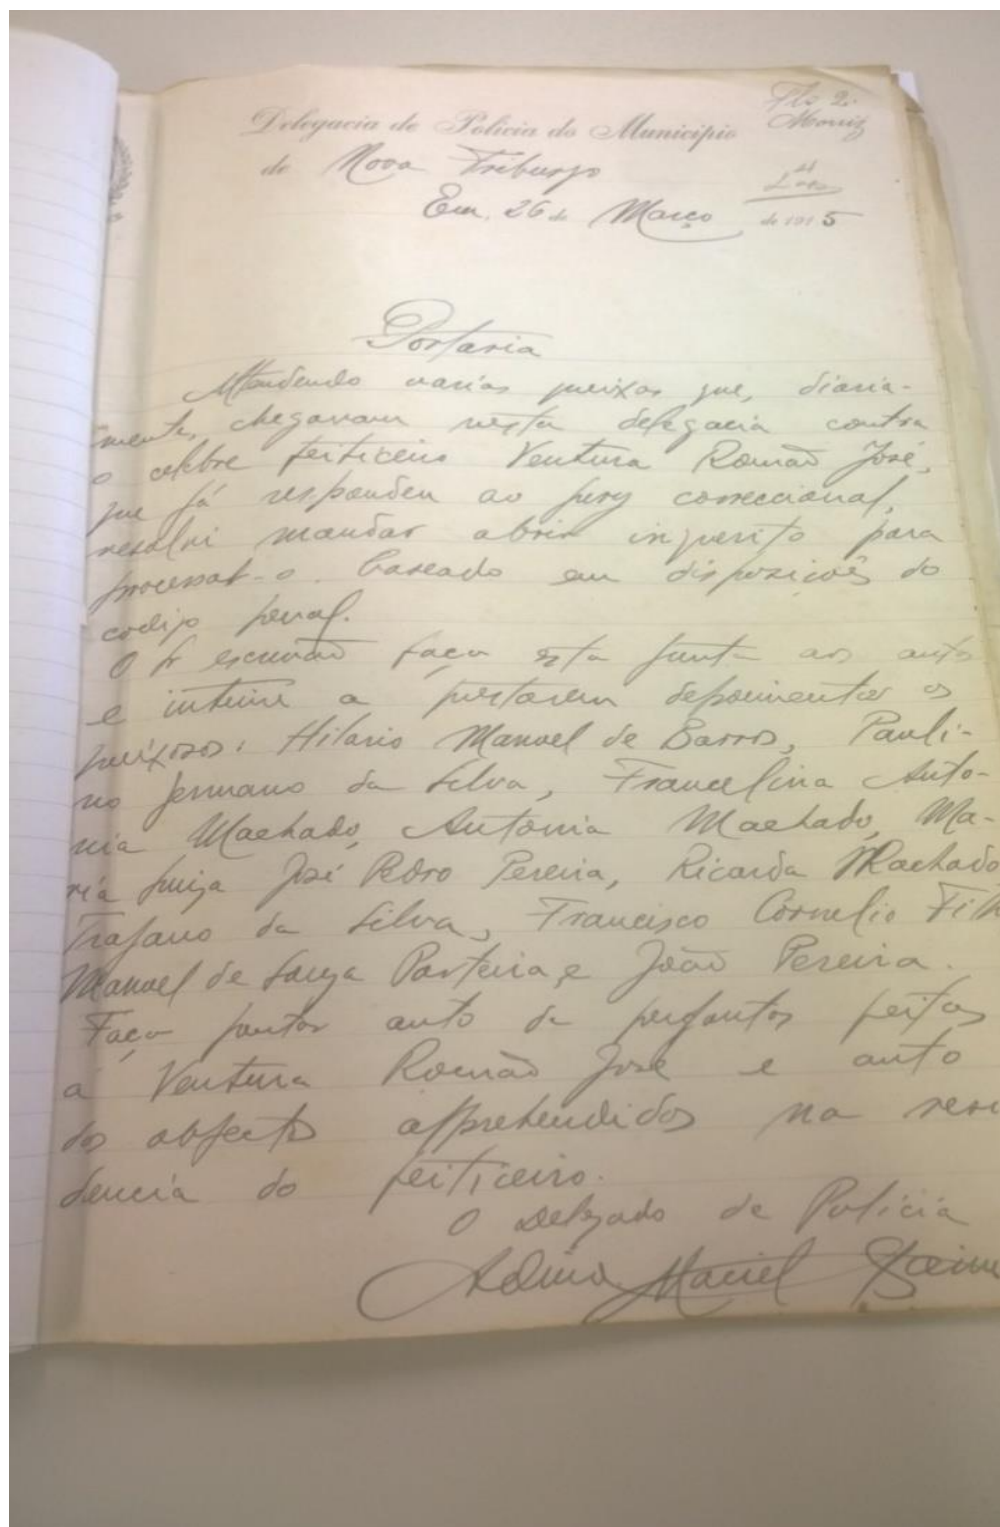 Fls 2.
Delegacia de Policia do Municipio
de Nova Friburgo
Em, 26 de Março de 1915
Portaria
Attendendo varias queixas que, diaria-
mente, chegavam nesta delegacia contra
o celebre feiticeiro Ventura Romão José,
que já respondeu ao jury correccional,
resolvi mandar abrir inquerito para
processal-o baseado em disposições do
codigo penal.
O sr escrivão faça esta junta aos autos
e intime a prestarem depoimentos os
queixosos: Hilario Manoel de Barros, Pauli-
no Germano da Silva, Francelina Anto-
nia Machado, Antonia Machado, Ma-
ria Luiza José Pedro Pereira, Ricarda Machado
Trajano da Silva, Francisco Cornelio Filh
Manoel de Souza Parteira, e João Pereira.
Faça juntar auto de perguntas feitas
a Ventura Romão José e auto
dos objectos apprehendidos na resi
dencia do feiticeiro.
O Delegado de Policia
Maciel